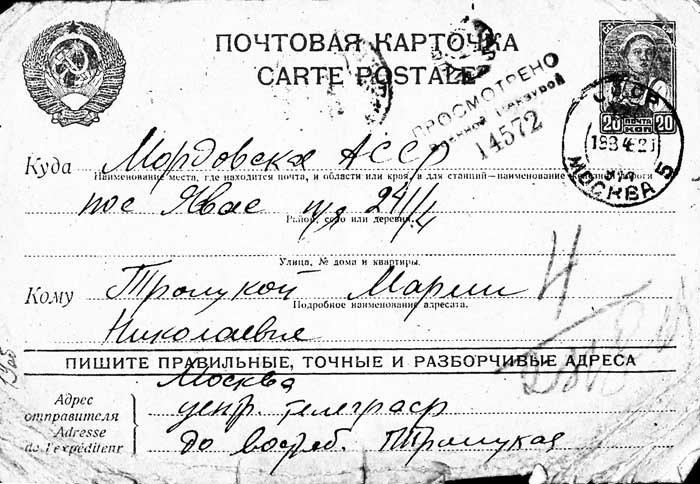 ПОЧТОВАЯ КАРТОЧКА
CARTE POSTALE
ПРОСМОТРЕНО
Военной Цензурой
14572
ПОЧТА
20 КОП 20
СССР
МОСКВА 5
Куда Мордовская АССР
Наименование места, где находится почта, и области или края, а для станций—наименование дороги
пос Явас п/я 241/4
Район, село или деревня
Улица, № дома и квартиры.
Кому Троицкой Марии
Подробное наименование адресата.
Николаевне
ПИШИТЕ ПРАВИЛЬНЫЕ, ТОЧНЫЕ И РАЗБОРЧИВЫЕ АДРЕСА
Адрес отправителя
Adresse de l'expéditeur
Москва
центр. телеграф
до востреб. Троицкая